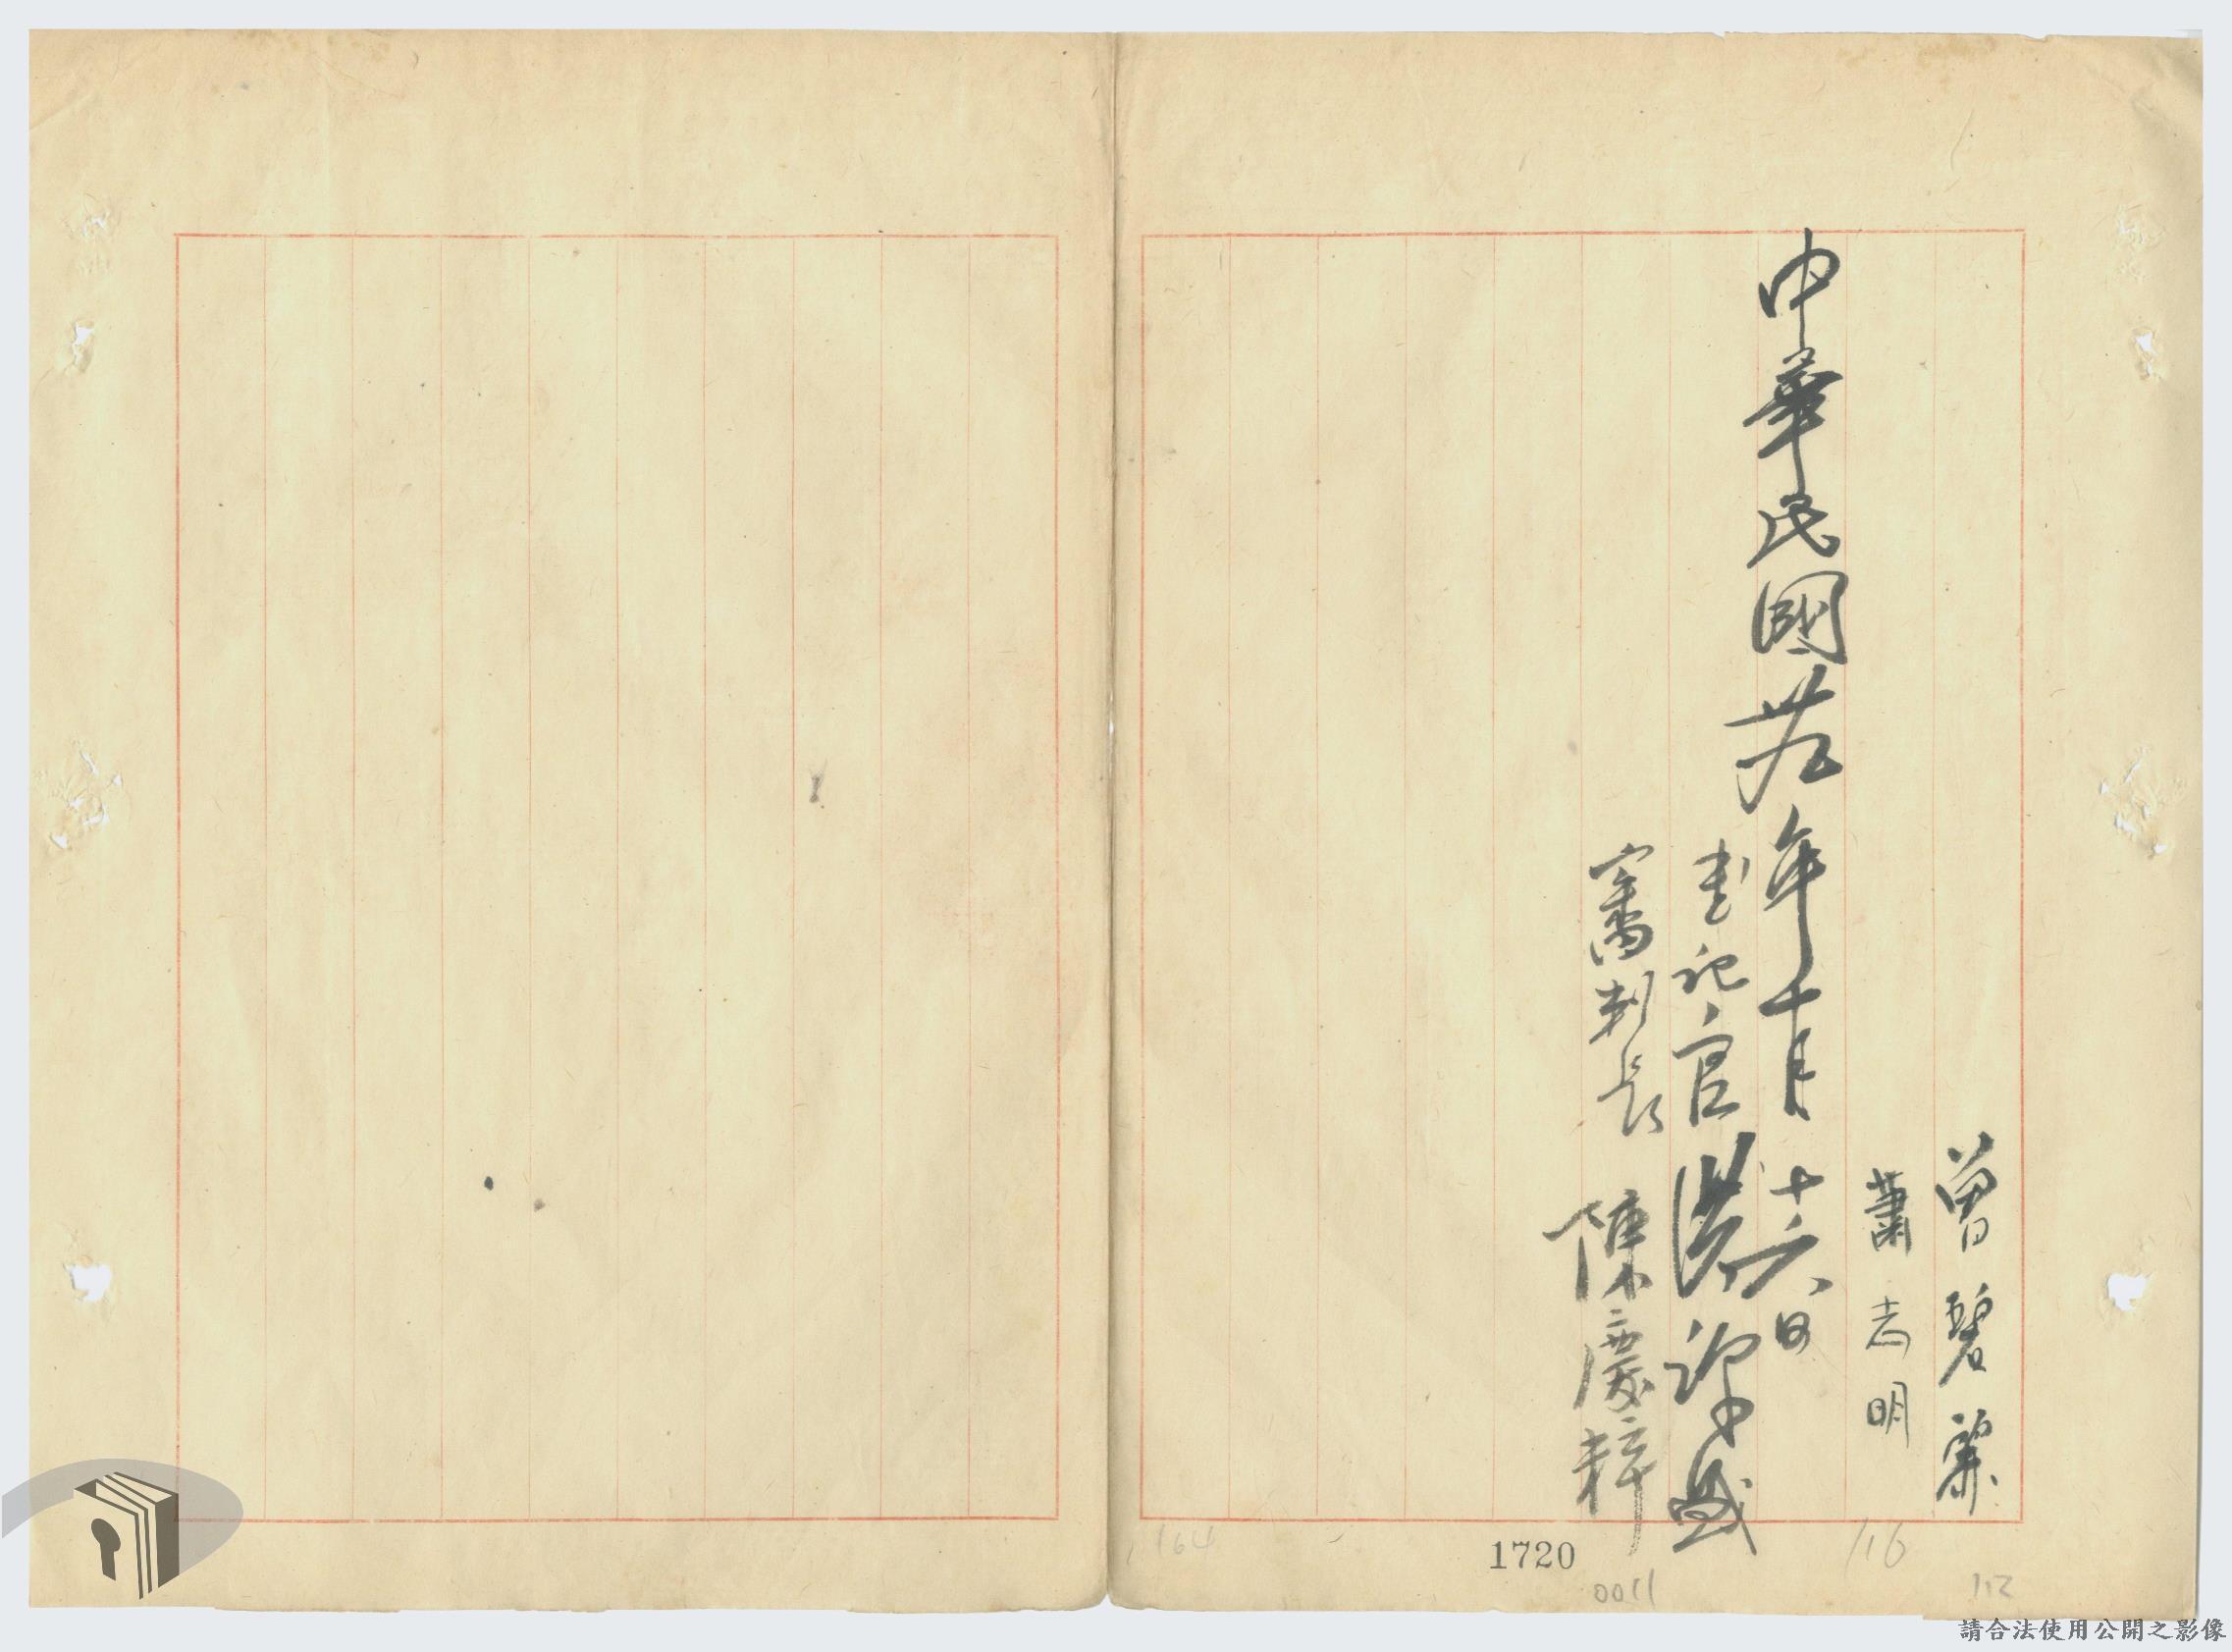 曾碧麗
蕭志明
中華民國卅九年十月十六日
書記官 洪源盛
審判長 陳慶粹
1720
0011
164
116
112
請合法使用公開之影像